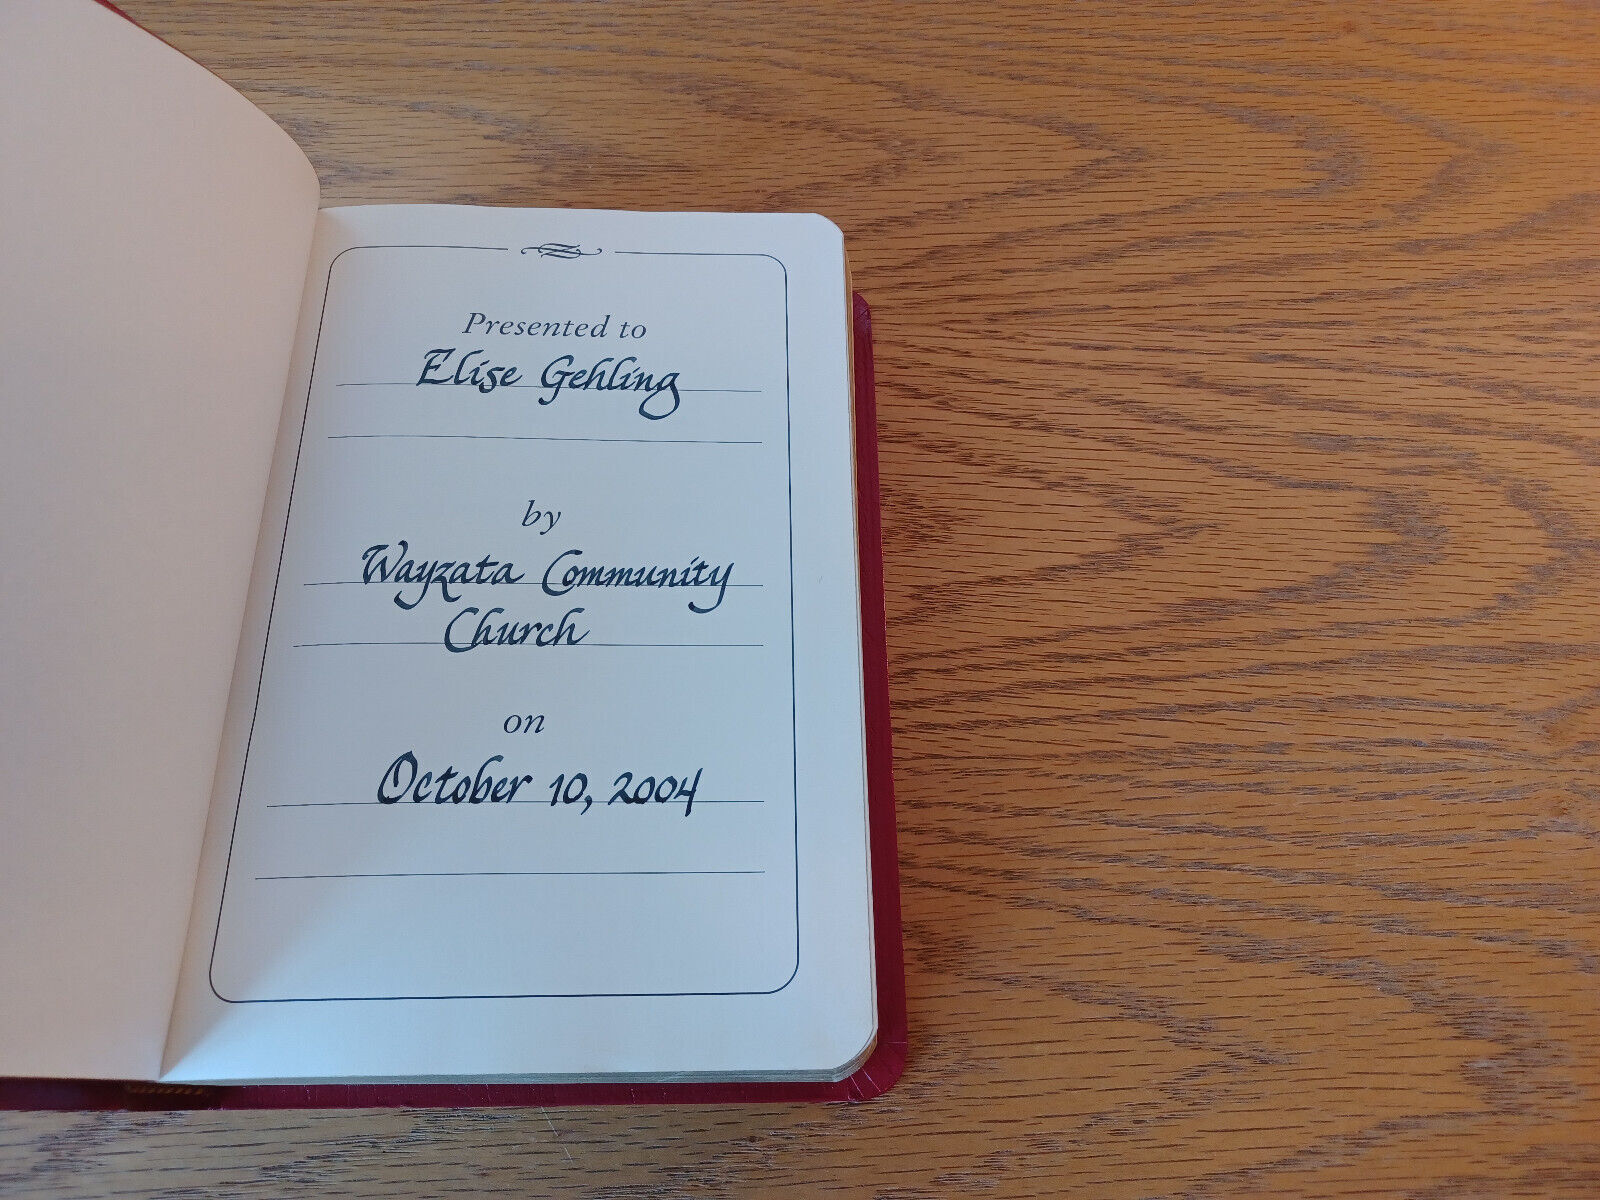 Presented to
Elise Gehling
by
Wayzata Community
Church
on
October 10, 2004